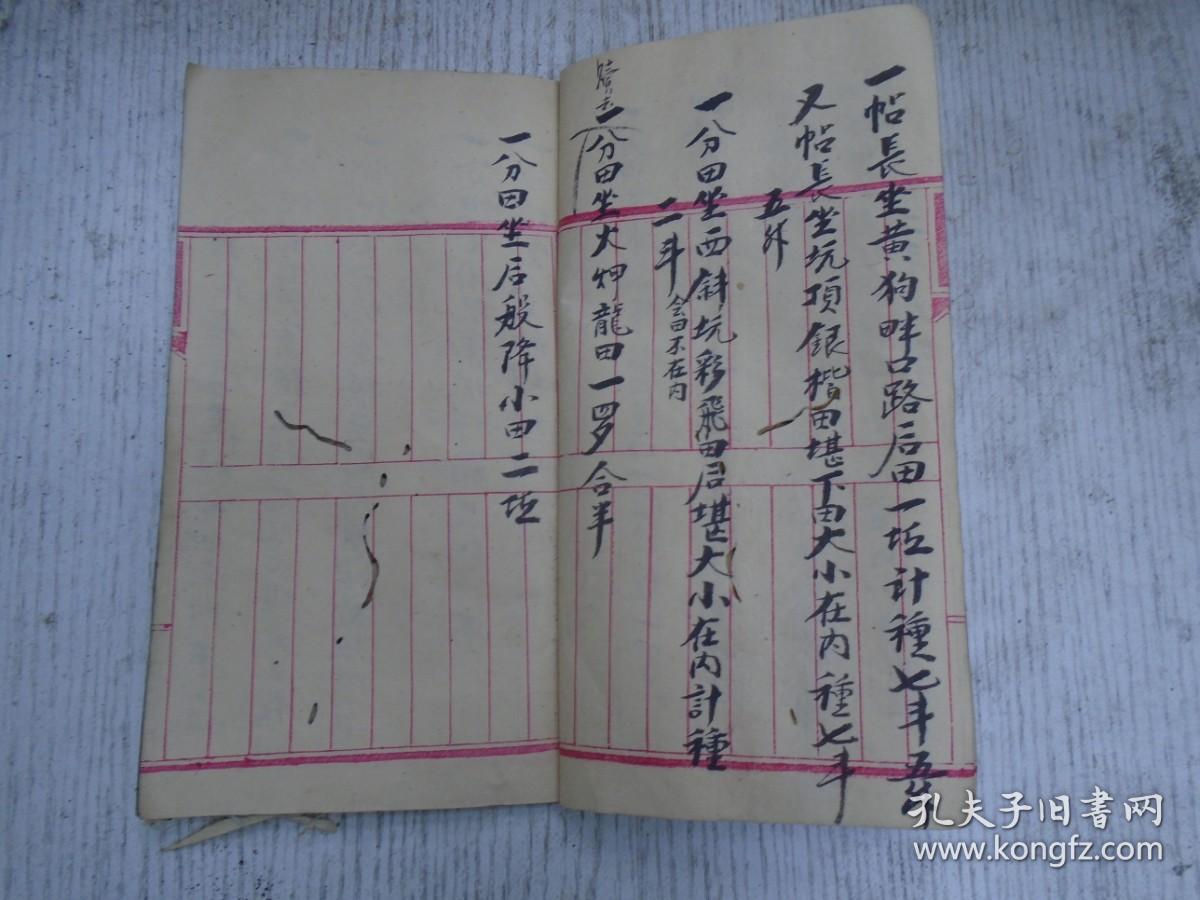 一帖長坐黃狗畔口路后田一坵計種七斗五升
又帖長坐坑頂銀楷田墈下田大小在內種七斗
五升
一分田坐西斜坑彩飛田后墈大小在內計種
二斗会田不在內
一分田坐大坪龍田一罗合半
一分田坐后般降小田二坵
孔夫子旧书网
www.kongfz.com